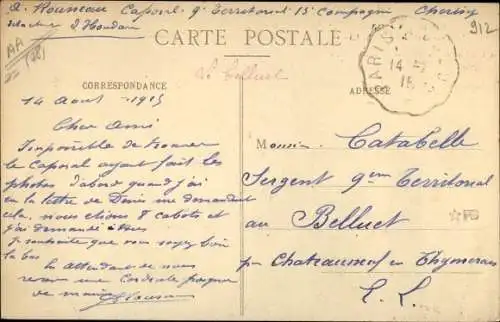 Caporal 9e Territorial 15e Compagnie
CARTE POSTALE
912
CORRESPONDANCE
ADRESSE
PARIS
14
15
14 aout 1915
Cher Ami
Impossible de trouver
le caporal ayant fait les
photos d'abord quand j'ai
eu la lettre de Denis me demandant
cela, nous étions 8 cabots et
j'ai demandé à tous
que vous soyez bien
là bas
En attendant de vous
revoir une Cordiale poignée
de main
Monsieur Catabelle
Sergent 9em Territorial
au Belluet
par Chateauneuf en Thymerais
E. L.